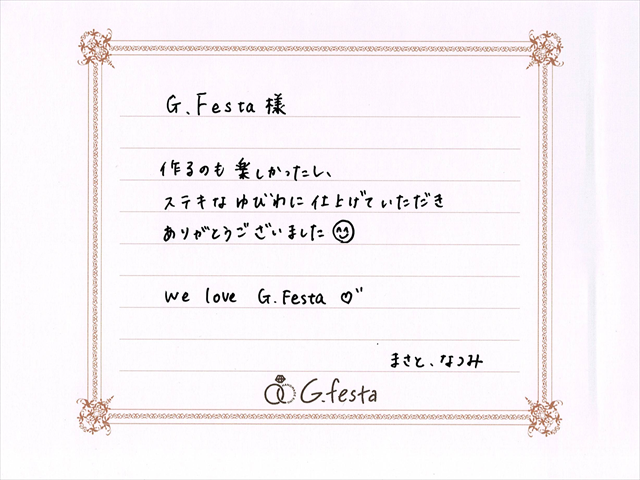 G.Festa 様
作るのも楽しかったし、
ステキなゆびわに仕上げていただき
ありがとうございました
we love G.Festa ♡
まさと、なつみ
G.festa